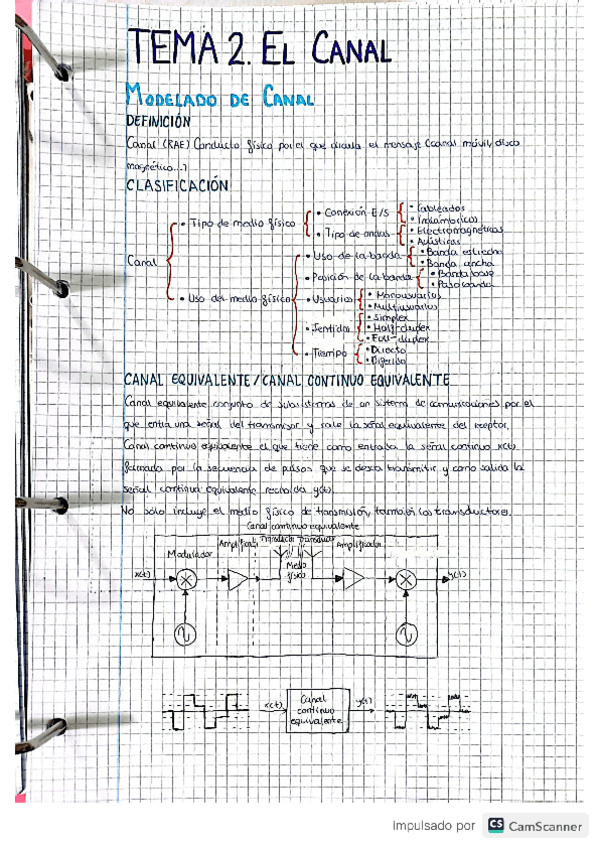 TEMA 2. EL CANAL
MODELADO DE CANAL
DEFINICIÓN
Canal (RAE) Conducto físico por el que circula el mensaje (canal móvil, disco
magnético...)
CLASIFICACIÓN
Canal
• Tipo de medio físico
• Conexión E/S
• Cableados
• Inalámbricos
• Tipo de ondas
• Electromagnéticas
• Acústicas
• Uso del medio físico
• Uso de la banda
• Banda estrecha
• Banda ancha
• Posición de la banda
• Banda base
• Paso banda
• Usuarios
• Monousuarios
• Multiusuarios
• Sentidos
• Simplex
• Half-duplex
• Full-duplex
• Tiempo
• Directo
• Diferido
CANAL EQUIVALENTE/CANAL CONTINUO EQUIVALENTE
Canal equivalente conjunto de subsistemas de un sistema de comunicaciones por el
que entra una señal del transmisor y sale la señal equivalente del receptor.
Canal continuo equivalente el que tiene como entrada la señal continua x(t)
formada por la secuencia de pulsos que se desea transmitir y como salida la
señal continua equivalente recibida y(t).
No sólo incluye el medio físico de transmisión, también los transductores.
Canal continuo equivalente
Modulador
Amplificador
Transductor
Transductor
Amplificador
Medio
físico
x(t)
y(t)
x(t)
Canal
continuo
equivalente
y(t)
Impulsado por CS CamScanner